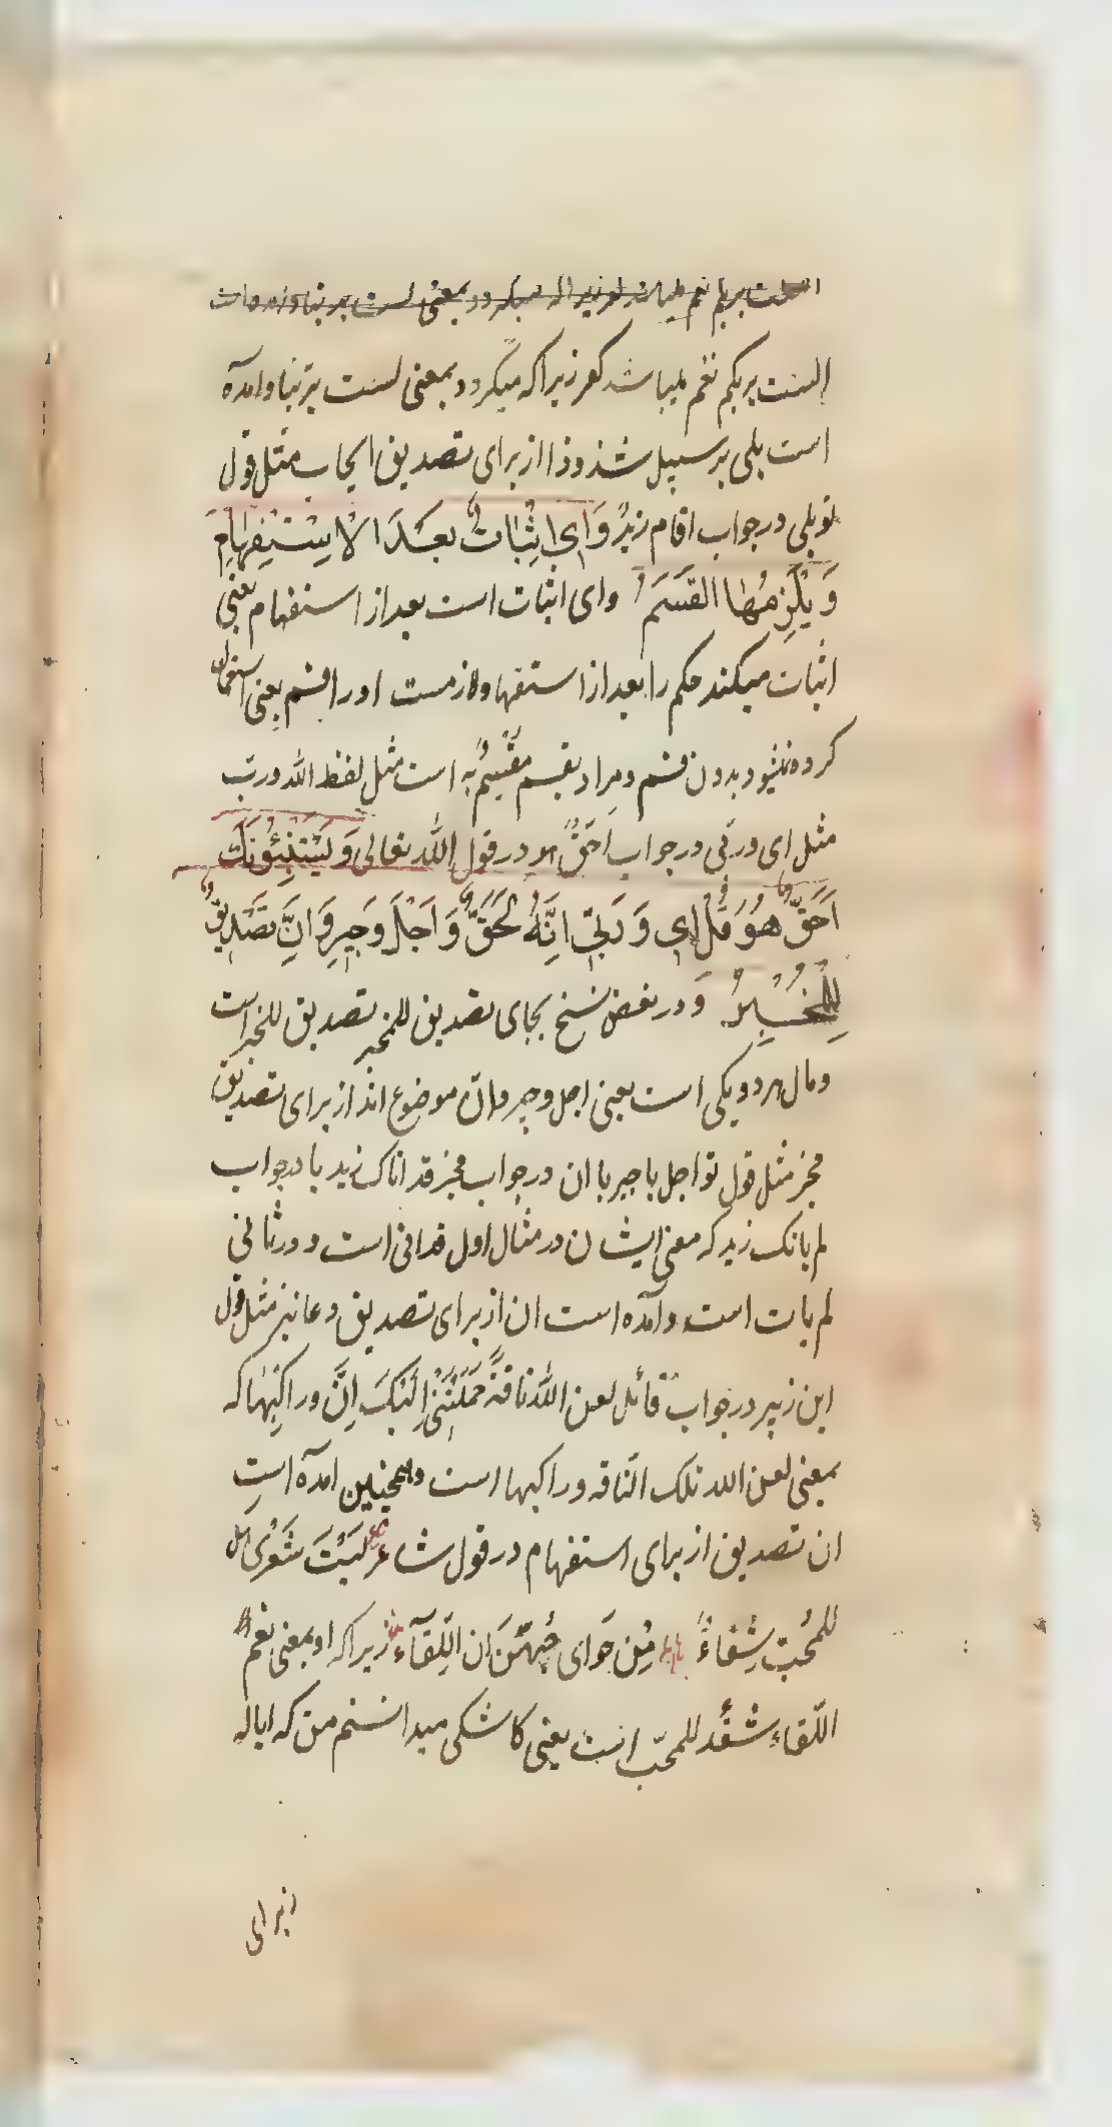 الست بربکم نعم میباشد کفر زیرا که میگردد بمعنی لست بربنا و آمده است
الست بربکم نعم میباشد کفر زیرا که میگردد بمعنی لست بربنا و امده
است بلی بر سبیل شذوذ از برای تصدیق ایجاب مثل قول
تو بلی در جواب اقام زیدٌ وَاِی اِثْبٰاتٌ بَعْدَ الْاِسْتِفْهٰامِ
وَیَلْزِمُهٰا القَسَمُ وای اثبات است بعد از استفهام یعنی
اثبات میکند حکم را بعد از استفها و لازمست او را قسم یعنی استعمال
کرده نمیشود بدون قسم و مراد بقسم مُقْسَمٌ به است مثل لفظ الله و ربّ
مثل ای و ربّی در جواب اَحَقٌّ هو در قول الله تعالی وَیَسْتَنْبِئُونَكَ
اَحَقٌّ هُوَ قُلْ اِی وَرَبّی اِنَّهُ لَحَقٌّ وَاَجَلْ وَجَیرِ وَاِنَّ تَصْدیقٌ
لِلْمُخْبِرْ و در بعض نسخ بجای تصدیق للمخبر تصدیق للخبر است
و مال هر دو یکی است یعنی اجل و جیر و ان موضوع اند از برای تصدیق
مخبر مثل قول تو اجل یا جیر یا ان در جواب مخبر قد اتاک زید یا در جواب
لم یاتک زید که معنی ایشان در مثال اول قد اتی است و در ثانی
لم یات است و آمده است ان از برای تصدیق دعا نیز مثل قول
ابن زبیر در جواب قائل لعن الله ناقةً حَمَلَتْنی اِلَیْكَ اِنَّ وراکِبَها که
بمعنی لعن الله تلک النّاقه وراکبها است و همچنین امده است
ان تصدیق از برای استفهام در قول شاعر لَیْتَ شَعْری هل
للمُحبّ شِفاءٌ مِنْ جَوای حُبِّهِنَّ ان اللِّقآء زیرا که او بمعنی نعم
اللّقاء شفٰاء للمحبّ است یعنی کاشکی میدانستم من که ایا
از برای